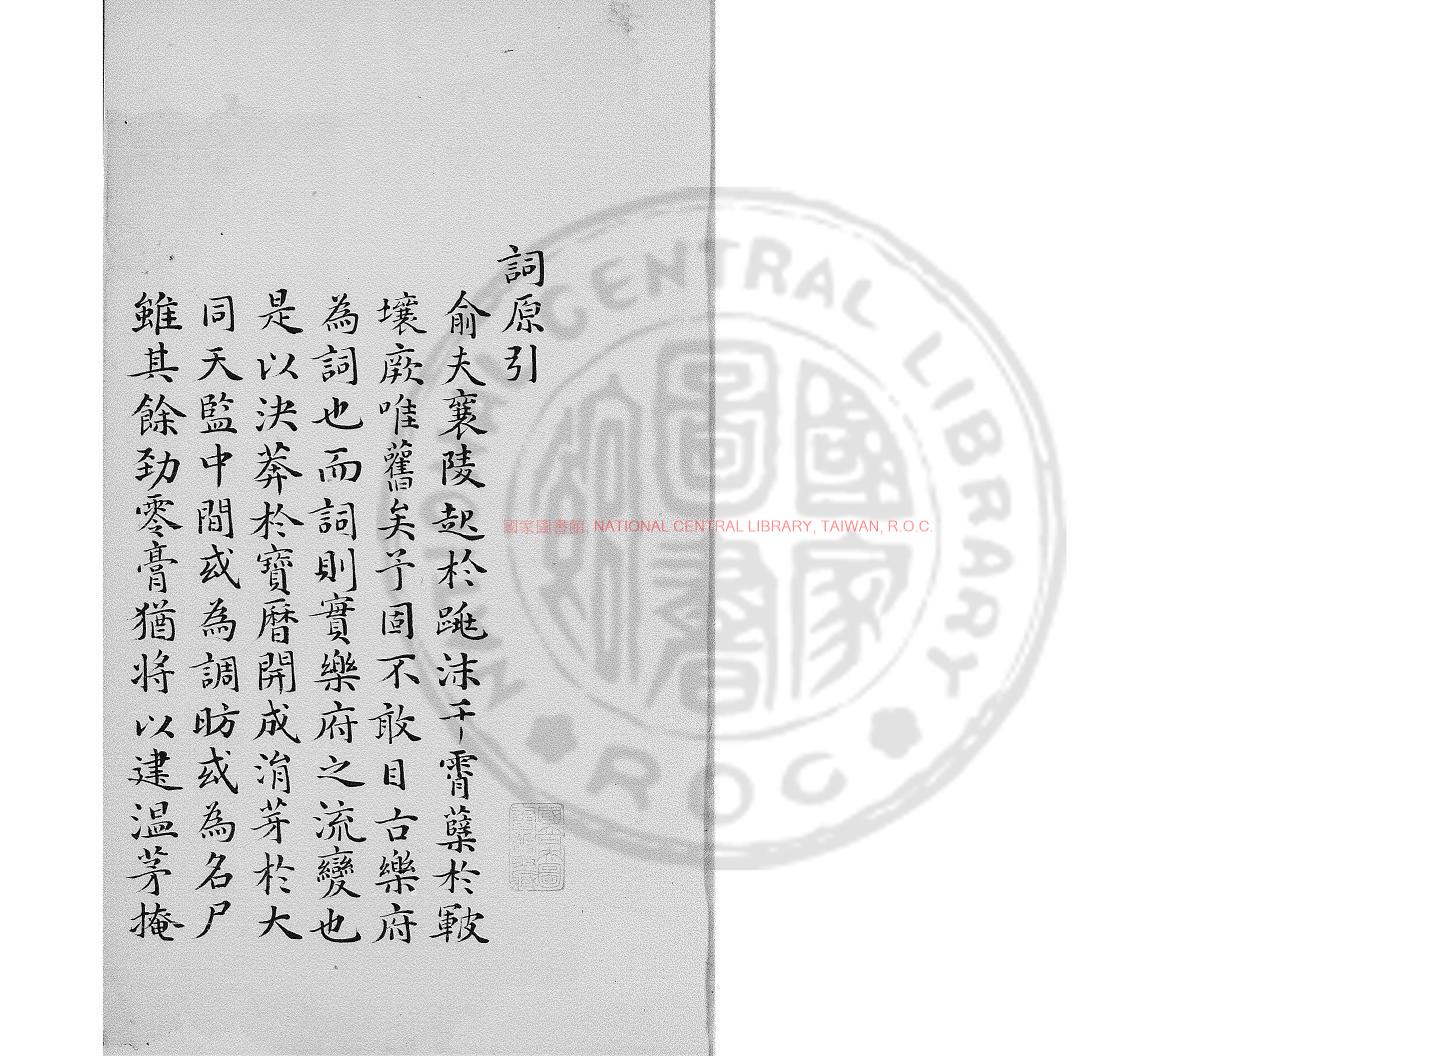 詞原引
俞夫襄陵起於跳沫干霄蘖於皸
壤厥唯舊矣予固不敢目古樂府
為詞也而詞則實樂府之流變也
是以決莽於寶曆開成涓芽於大
同天監中間或為調昉或為名尸
雖其餘勁零膏猶將以建溫茅掩
國家圖書館, NATIONAL CENTRAL LIBRARY, TAIWAN, R.O.C.
NATIONAL CENTRAL LIBRARY ROC
國家圖書